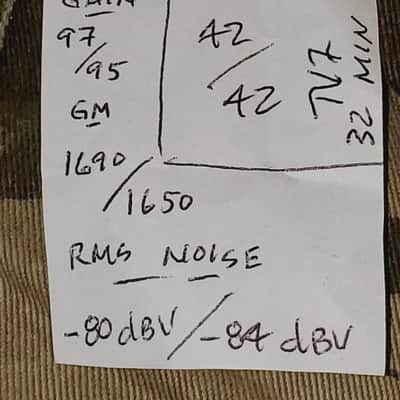 GAIN
97
/95
GM
1690
/1650
42
/
42
TV7
32 MIN
RMS NOISE
-80 dBV / -84 dBV